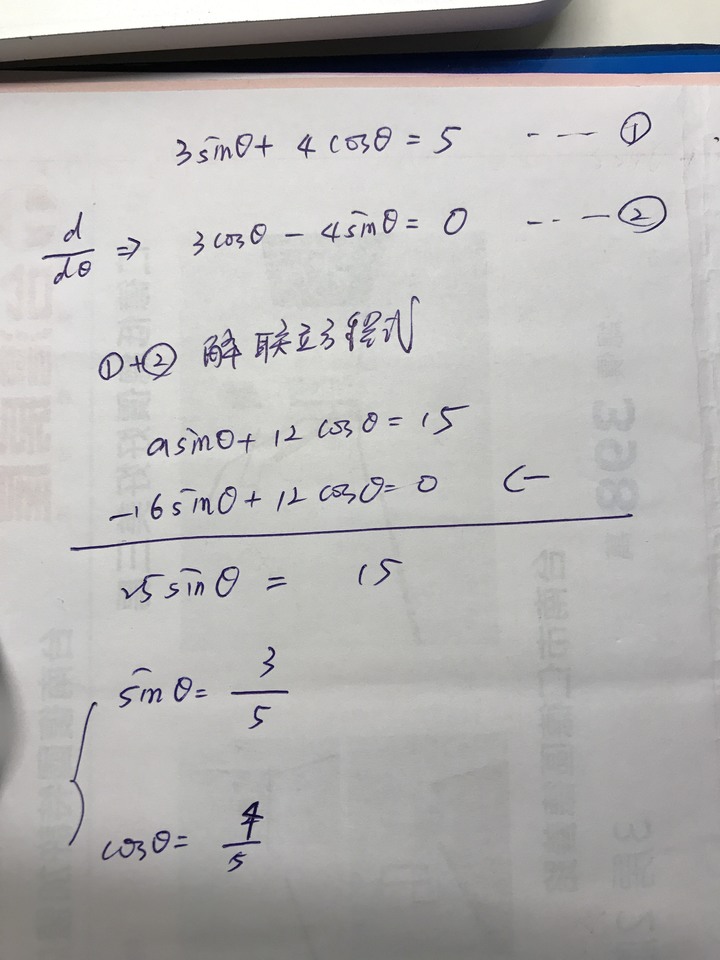 3sinθ + 4cosθ = 5 ---- ①
d/dθ ⇒ 3cosθ - 4sinθ = 0 ---- ②
①+② 解联立方程式
9sinθ + 12cosθ = 15
-16sinθ + 12cosθ = 0 (-
25sinθ = 15
sinθ = 3/5
cosθ = 4/5